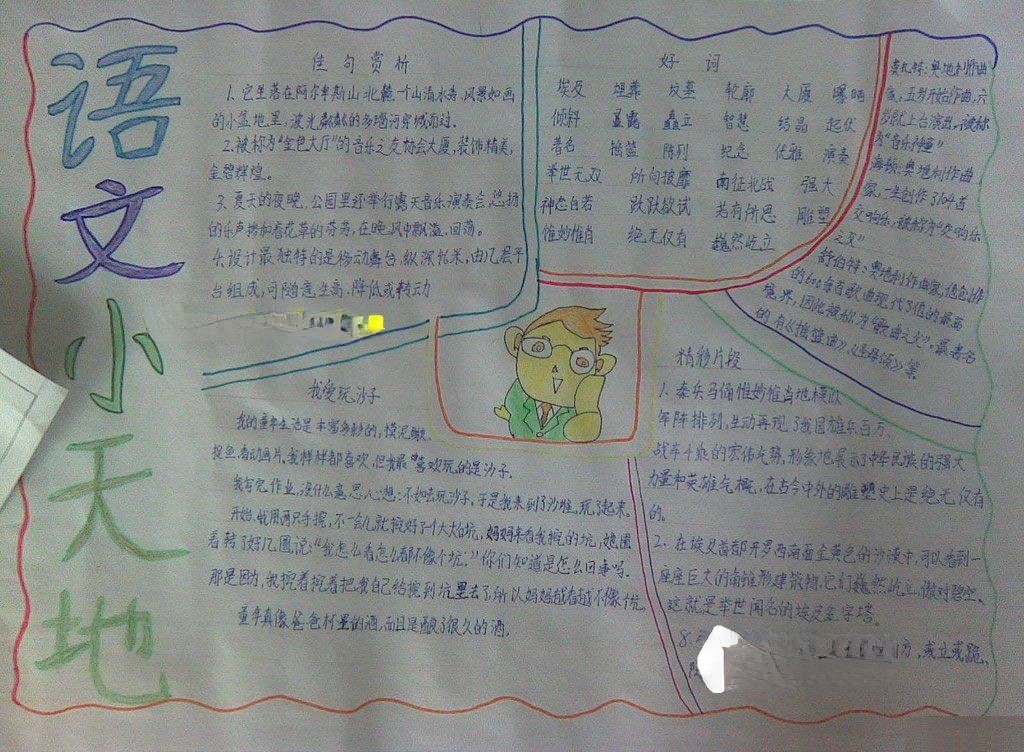 语文小天地
佳句赏析
1、它坐落在阿尔卑斯山北麓一个山清水秀、风景如画
的小盆地里，波光粼粼的多瑙河穿城而过.
2、被称为"金色大厅"的音乐之友协会大厦，装饰精美，
金碧辉煌。
3、夏天的夜晚，公园里还举行露天音乐演奏会，悠扬
的乐声拂和着花草的芬芳，在晚风中飘溢、回荡。
4、设计最独特的是移动舞台，纵深 米，由几层平
台组成，可随意生高、降低或转动
好词
埃及 坟墓 轮廓 大厦 曝晒
倾斜 矗立 智慧 结晶 起伏
著名 摇篮 陈列 纪念 优雅 演奏
举世无双 所向披靡 南征北战 强大
神态自若 跃跃欲试 若有所思 雕塑
惟妙惟肖 绝无仅有 巍然屹立
莫扎特：奥地利作曲
家，五岁开始作曲，六
岁就上台演出，被称
为"音乐神童"
海顿：奥地利作曲
家，一生创作了104首
交响乐，被称为"交响乐
之父"
舒伯特：奥地利作曲家，他创作
的600余首歌曲现代了他的最高
境界，因此被称为"歌曲之父"，最著名
的有《摇篮曲》、《圣母颂》等
我爱玩沙子
我的童年生活是丰富多彩的，摸泥鳅、
捉鱼、看动画片，我样样都喜欢，但我最喜欢玩的是沙子.
我写完作业，没什么意思，心想：不如去玩沙子，于是我来到了沙堆，玩了起来。
开始，我用两只手挖，不一会儿就挖好了一个大大的坑，妈妈来看我挖的坑，她围
着转了好几圈说："我怎么看怎么都不像个坑."你们知道是怎么回事吗.
那是因为，我挖着挖着把我自己给挖到坑里去了，所以妈妈越看越不像个坑.
童年真像爸爸杯里的酒，而且是酿了很久的酒.
精彩片段
1、秦兵马俑惟妙惟肖地模拟
军阵排列，生动再现了我国雄兵百万、
战车千乘的宏伟气势，形象地展示了中华民族的强大
力量和英雄气概，在古今中外的雕塑史上是绝无仅有
的。
2、在埃及首都开罗西南面金黄色的沙漠中，可以看到一
座座巨大的角锥形建筑物.它们巍然屹立，傲对碧空、
这就是举世闻名的埃及金字塔。
方，或立或跪、